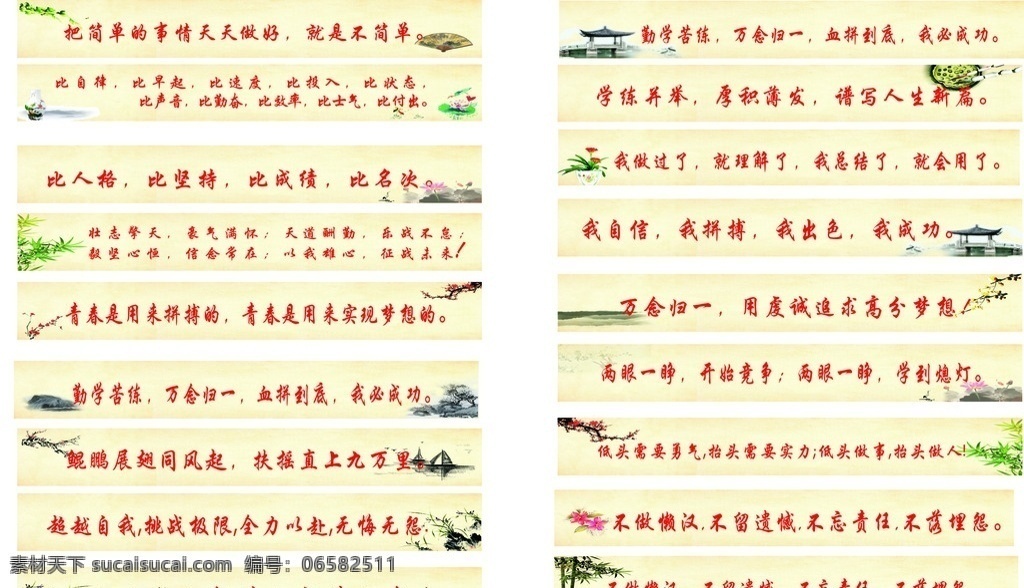 把简单的事情天天做好，就是不简单。
比自律，比早起，比速度，比投入，比状态，
比声音，比勤奋，比效率，比士气，比付出。
比人格，比坚持，比成绩，比名次。
壮志擎天，豪气满怀；天道酬勤，乐战不怠；
毅坚心恒，信念常在；以我雄心，征战未来！
青春是用来拼搏的，青春是用来实现梦想的。
勤学苦练，万念归一，血拼到底，我必成功。
鲲鹏展翅同风起，扶摇直上九万里。
超越自我,挑战极限,全力以赴,无悔无怨.
勤学苦练，万念归一，血拼到底，我必成功。
学练并举，厚积薄发，谱写人生新篇。
我做过了，就理解了，我总结了，就会用了。
我自信，我拼搏，我出色，我成功。
万念归一，用虔诚追求高分梦想！
两眼一睁，开始竞争；两眼一睁，学到熄灯。
低头需要勇气,抬头需要实力;低头做事,抬头做人!
不做懒汉,不留遗憾,不忘责任,不落埋怨。
不做懒汉,不留遗憾,不忘责任,不落埋怨
素材天下 sucaisucai.com 编号：06582511